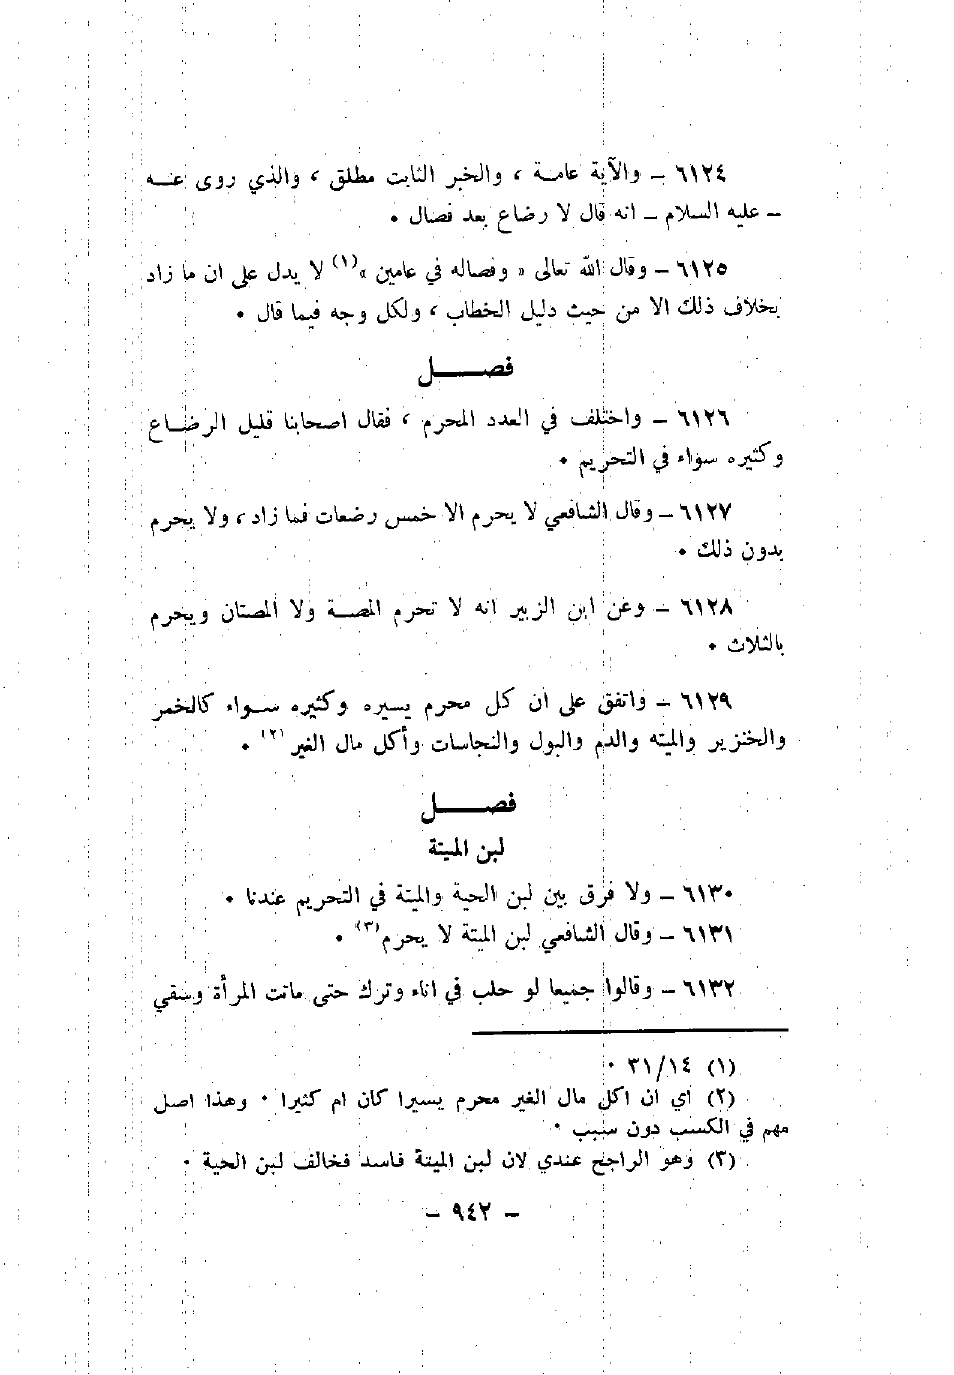 ٦١٢٤ – والآية عامة ، والخبر الثابت مطلق ، والذي روى عنه
– عليه السلام – انه قال لا رضاع بعد فصال .
٦١٢٥ – وقال الله تعالى « وفصاله في عامين »(١) لا يدل على ان ما زاد
بخلاف ذلك الا من حيث دليل الخطاب ، ولكل وجه فيما قال .
فصل
٦١٢٦ – واختلف في العدد المحرم ، فقال اصحابنا قليل الرضاع
وكثيره سواء في التحريم .
٦١٢٧ – وقال الشافعي لا يحرم الا خمس رضعات فما زاد ، ولا يحرم
بدون ذلك .
٦١٢٨ – وعن ابن الزبير انه لا تحرم المصة ولا المصتان ويحرم
بالثلاث .
٦١٢٩ – واتفق على ان كل محرم يسيره وكثيره سواء كالخمر
والخنزير والميته والدم والبول والنجاسات وأكل مال الغير(٢) .
فصل
لبن الميتة
٦١٣٠ – ولا فرق بين لبن الحية والميتة في التحريم عندنا .
٦١٣١ – وقال الشافعي لبن الميتة لا يحرم(٣) .
٦١٣٢ – وقالوا جميعا لو حلب في اناء وترك حتى ماتت المرأة وسقي
(١) ٣١/١٤ .
(٢) اي ان اكل مال الغير محرم يسيرا كان ام كثيرا . وهذا اصل
مهم في الكسب دون سبب .
(٣) وهو الراجح عندي لان لبن الميتة فاسد فخالف لبن الحية .
– ٩٤٢ –